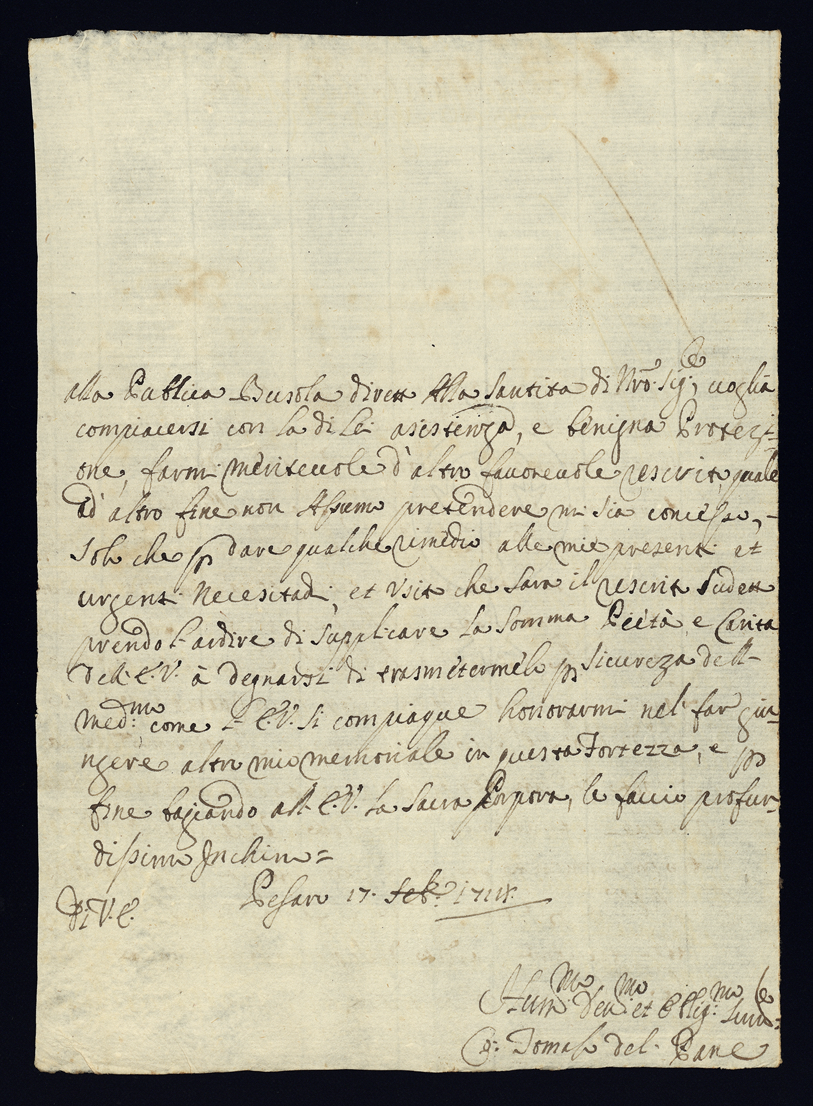 alla Publica Busola dirett. Alla Santita di Nro. Sig.re, voglia
compiacersi con la di Lei asistenza, e benigna Protezi=
one, farmi meritevole d'altro favorevole rescrito, quale
ad' altro fine non Assumo pretendere mi sia concesso, -
Solo che p dare qualche rimedio alle mie presenti et
urgenti Necesitadi, et Usito che sara il rescrito Sudetto
prendo l'ardire di Supplicare la Somma Pietà, e Carita
dell' E.V. à degnarsi di trasmetermelo p Sicureza dell-
med:mo come l' E.V. si compiaque honorarmi nel' far giu=
ngere altro mio memoriale in questa Fortezza, e p
fine bagiando all' E.V. la Sacra Porpora, le faccio profon=
dissimo Inchino=
Di V.E. Pesaro 17. Feb.
Hum.mo Deu.mo et Oblig:mo Serv.re
Tomaso del Pane